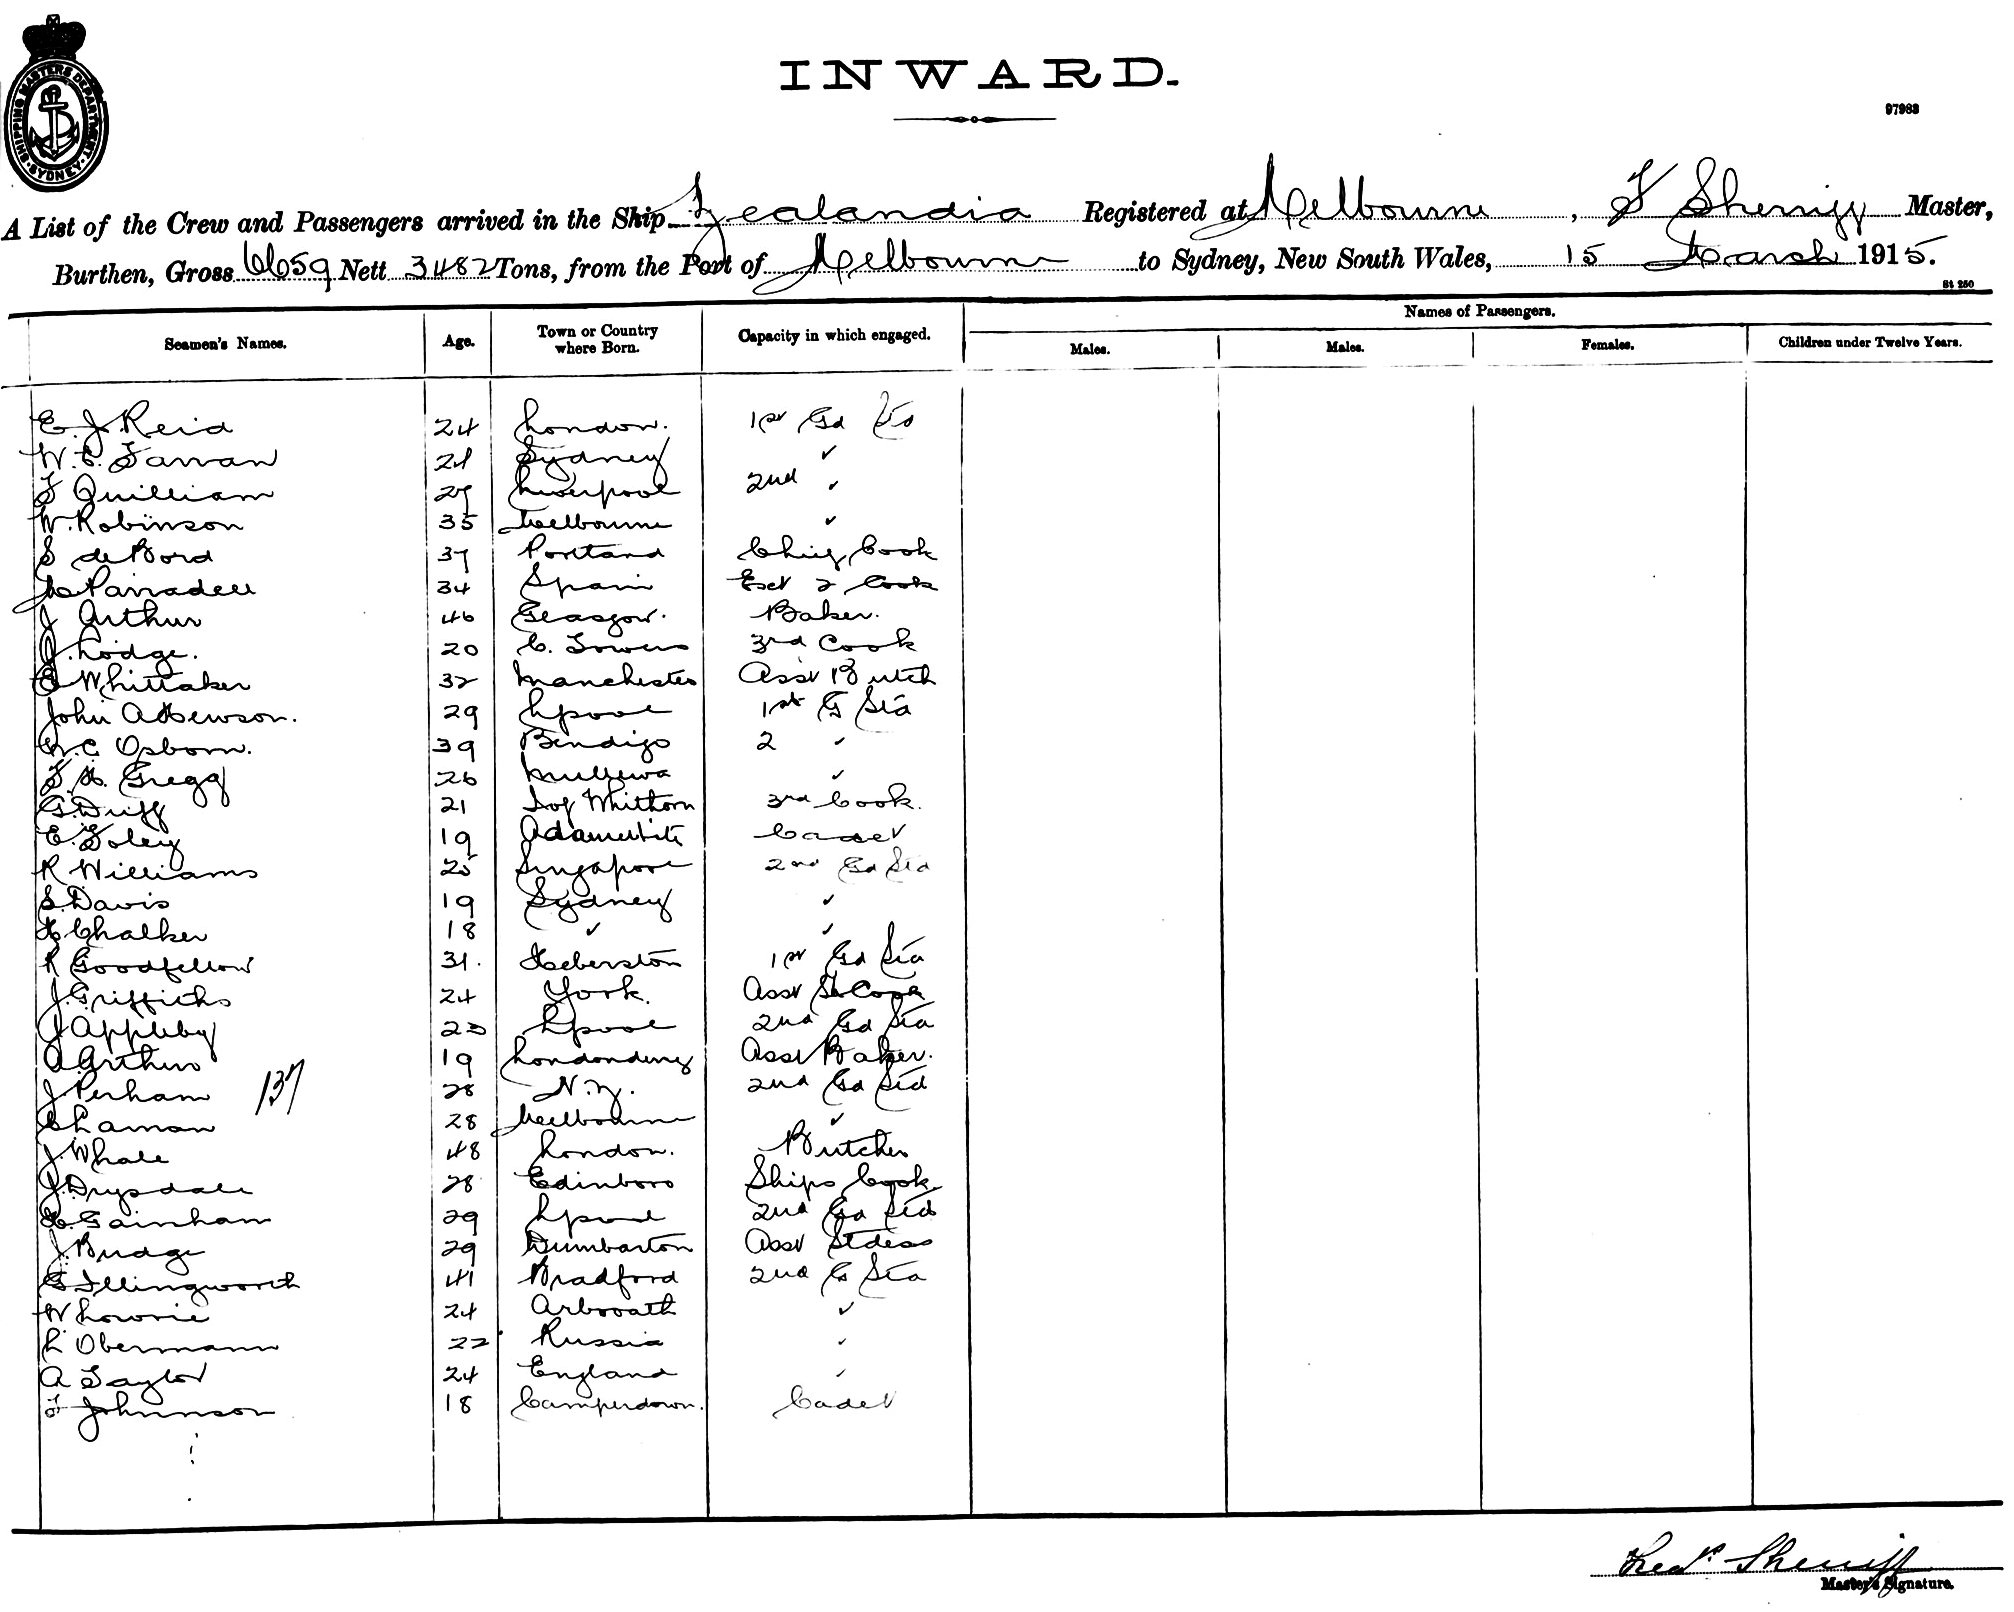 SHIPPING MASTERS DEPARTMENT SYDNEY
INWARD.
97983
A List of the Crew and Passengers arrived in the Ship Zealandia Registered at Melbourne, F Sherriff Master,
Burthen, Gross 6659 Nett 3482 Tons, from the Port of Melbourne to Sydney, New South Wales, 15 March 1915.
St 250
Seamen's Names. Age. Town or Country where Born. Capacity in which engaged. Names of Passengers.
Males. Males. Females. Children under Twelve Years.
E. J. Reid 24 London. 1st Gd
W. C. Farran 24 Sydney ✓
F Quilliam 27 Liverpool 2nd ✓
W. Robinson 35 Melbourne ✓
S de Bord 37 Portland Chief Cook
Parradell 34 Spain 2 Cook
J Arthur 46 Glasgow. Baker.
J. Lodge. 20 C. Towers 3rd Cook
E Whittaker 32 Manchester Asst Butch
John A Hewson. 29 Lpool 1st G Sea
W. C. Osborn. 39 Bendigo 2 ✓
F. H. Gregg 26 Mullewa ✓
G. Duff 21 Isof Whithorn 3rd Cook.
E. Foley 19 Cadet
R Williams 25 Singapore 2nd Gd Sea
S. Davis 19 Sydney ✓
H Chalker 18 ✓ ✓
R Goodfellow 31. 1st Gd Sea
J. Griffiths 24 York. Asst Cook
J Appleby 23 Lpool 2nd Gd Sea
A. Arthur 19 Londonderry Asst Baker.
J. Perham 137 28 N.Z. 2nd Gd Sea
C Laman 28 Melbourne ✓
J Whale 48 London. Butcher
J. Drysdale 28 Edinboro Ships Cook.
H. Gainham 29 Lpool 2nd Gd Sea
J. Budge 29 Dumbarton Asst Stdess
G Illingworth 41 Bradford 2nd G Sea
W Lowrie 24 Arbroath ✓
L Obermann 22 Russia ✓
A Taylor 24 England ✓
F Johnson 18 Camperdown. Cadet
Fredk Sherriff
Master's Signature.